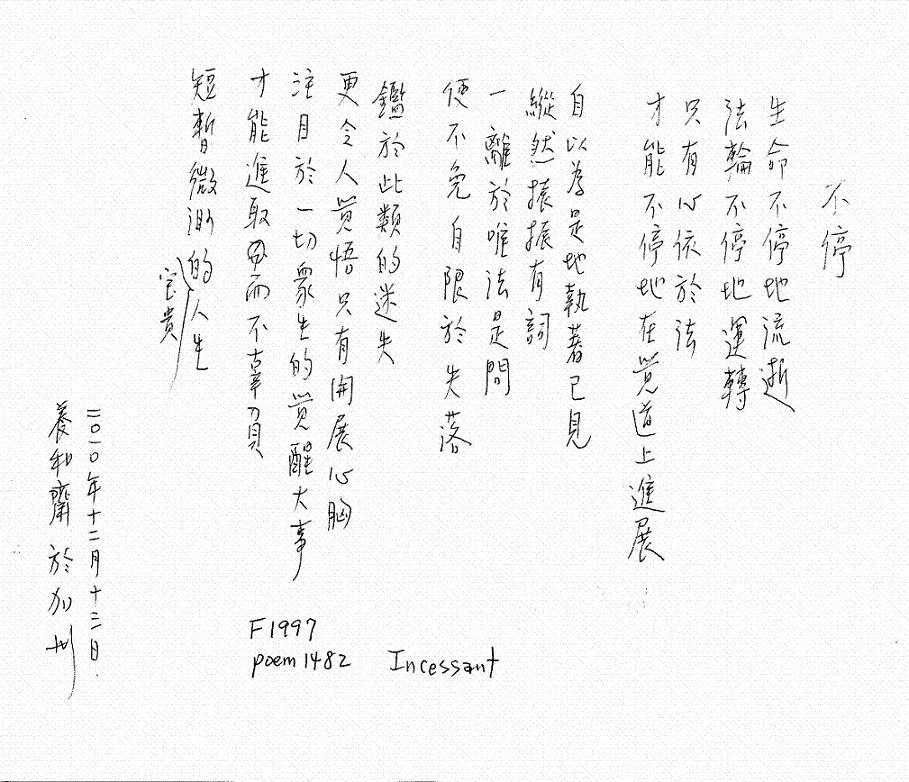 不停
生命不停地流逝
法輪不停地運轉
只有心依於法
才能不停地在覚道上進展
自以為是地執著己見
縱然振振有詞
一離於唯法是問
便不免自限於失落
鑑於此類的迷失
更令人覚悟只有開展心胸
注目於一切眾生的覚醒大事
才能進取因而不辜負
短暫微渺的人生
宝貴
二〇一〇年十二月十三日
養和齋 於加州
F1997
poem 1482 Incessant